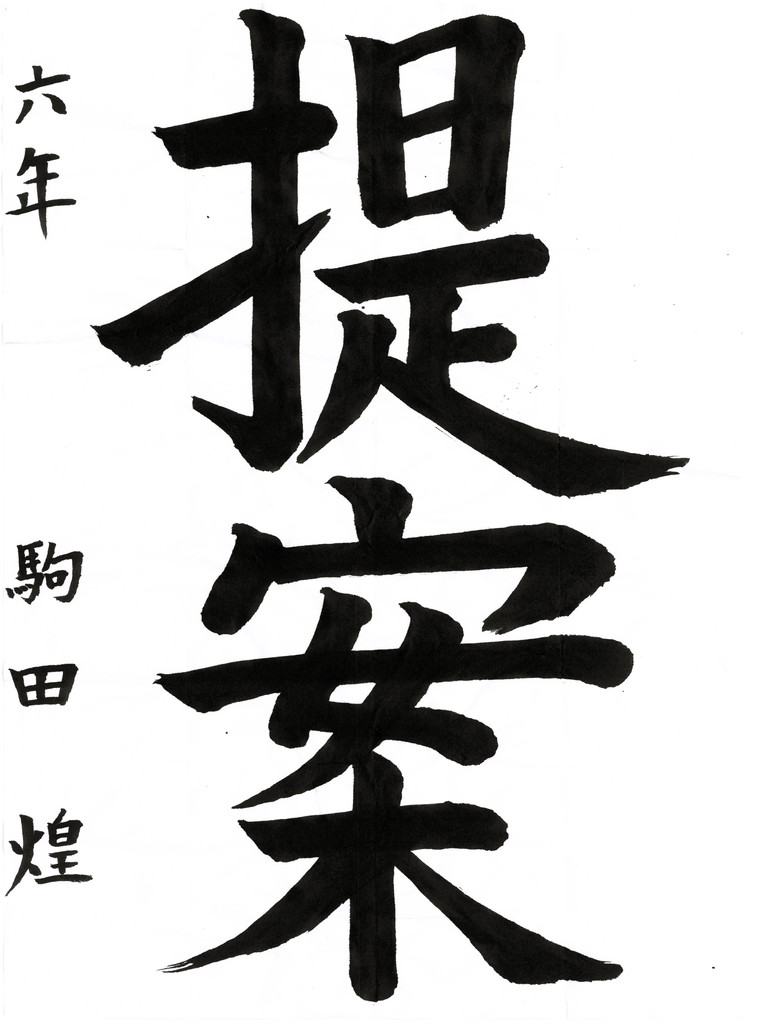 提案
六年 駒田煌